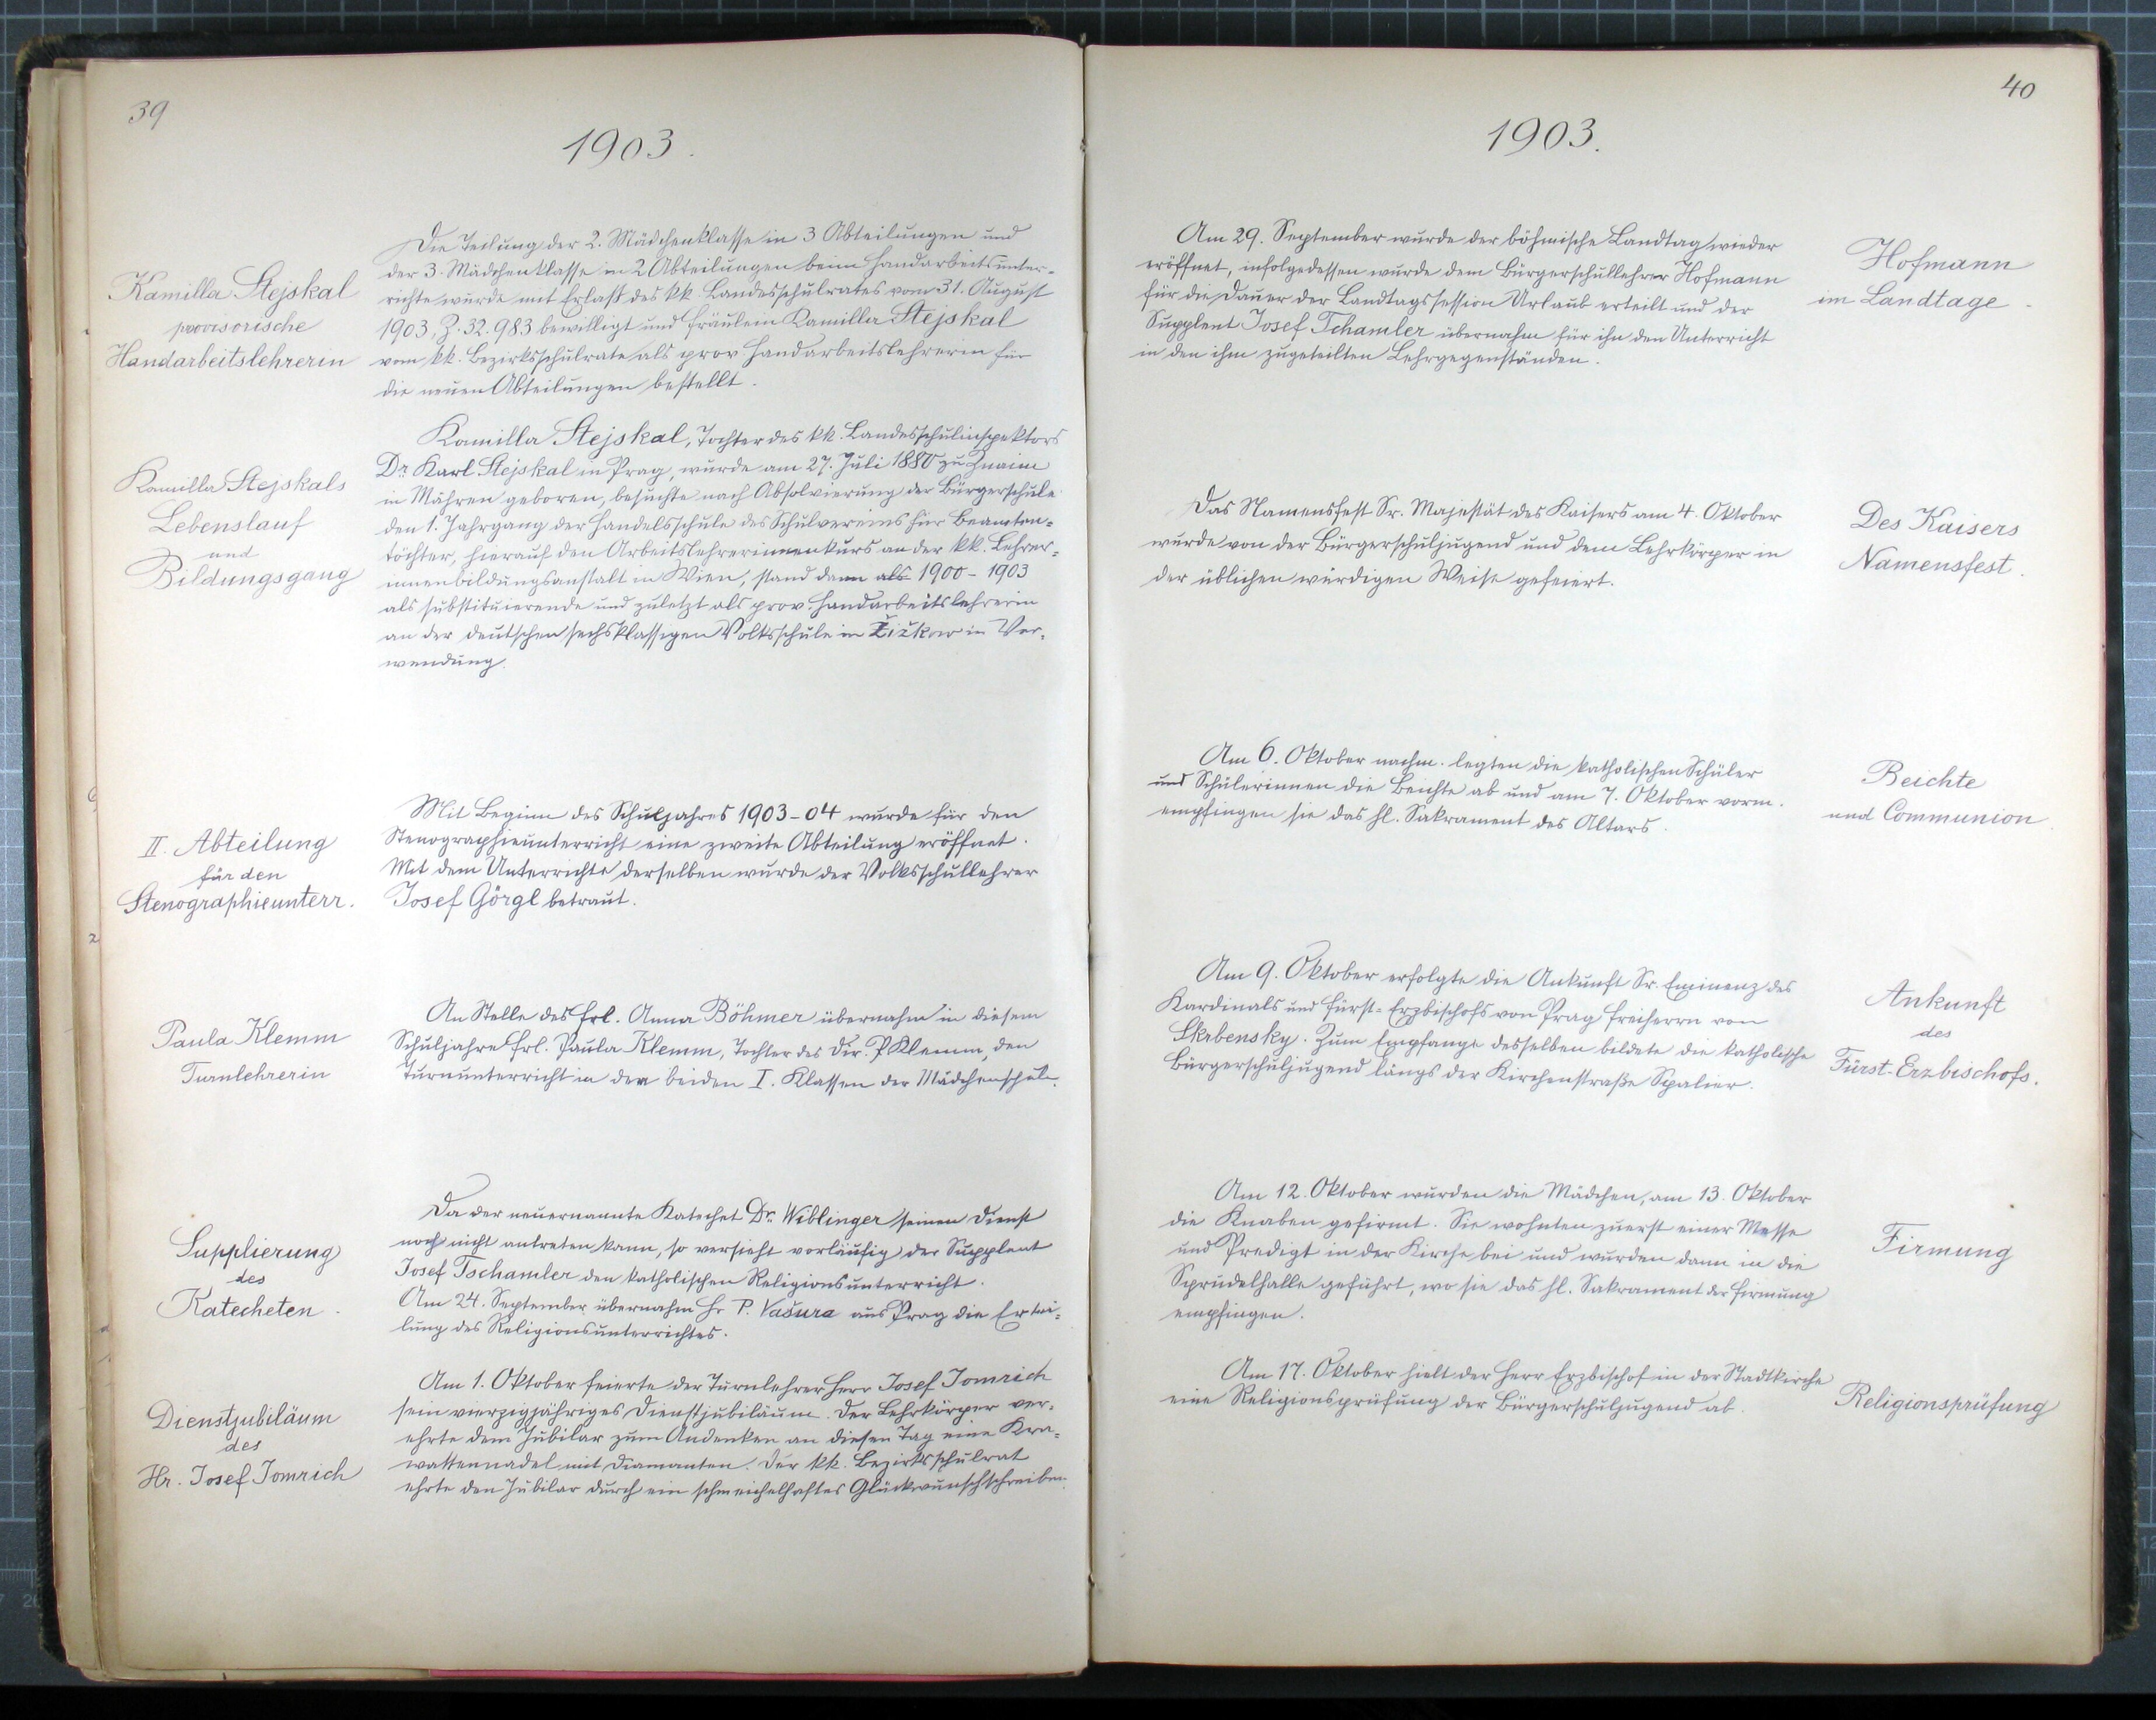 39
1903.
Kamilla Stejskal
provisorische
Handarbeitslehrerin
Die Teilung der 2. Mädchenklasse in 3 Abteilungen und
der 3. Mädchenklasse in 2 Abteilungen beim Handarbeitsunter-
richte wurde mit Erlaß des kk. Landesschulrates vom 31. August
1903, Z. 32.983 bewilligt und Fräulein Kamilla Stejskal
vom kk. Bezirksschulrate als prov. Handarbeitslehrerin für
die neuen Abteilungen bestellt.
Kamilla Stejskals
Lebenslauf
und
Bildungsgang
Kamilla Stejskal, Tochter des kk. Landesschulinspektors
Dr. Karl Stejskal in Prag, wurde am 27. Juli 1880 zu Znaim
in Mähren geboren, besuchte nach Absolvierung der Bürgerschule
den 1. Jahrgang der Handelsschule des Schulvereins für Beamten-
töchter, hierauf den Arbeitslehrerinnenkurs an der kk. Lehrer-
innenbildungsanstalt in Wien, stand dann als 1900-1903
als substituierende und zuletzt als prov. Handarbeitslehrerin
an der deutschen sechsklassigen Volksschule in Žižkow in Ver-
wendung.
II. Abteilung
für den
Stenographieunterr.
Mit Beginn des Schuljahres 1903-04 wurde für den
Stenographieunterricht eine zweite Abteilung eröffnet.
Mit dem Unterrichte derselben wurde der Volksschullehrer
Josef Görgl betraut.
Paula Klemm
Turnlehrerin
An Stelle des Frl. Anna Böhmer übernahm in diesem
Schuljahre Frl. Paula Klemm, Tochter des Dir. P. Klemm, den
Turnunterricht in den beiden I. Klassen der Mädchenschule.
Supplierung
des
Katecheten.
Da der neuernannte Katechet Dr. Wiblinger seinen Dienst
noch nicht antreten kann, so versieht vorläufig der Supplent
Josef Tschamler den katholischen Religionsunterricht.
Am 24. September übernahm Hr P. Vašura aus Prag die Ertei-
lung des Religionsunterrichtes.
Dienstjubiläum
des
Hr. Josef Tomrich
Am 1. Oktober feierte der Turnlehrer Herr Josef Tomrich
sein vierzigjähriges Dienstjubiläum. Der Lehrkörper ver-
ehrte dem Jubilar zum Andenken an diesen Tag eine Kra-
wattennadel mit Diamanten. Der kk. Bezirksschulrat
ehrte den Jubilar durch ein schmeichelhaftes Glückwunschschreiben.
40
1903.
Am 29. September wurde der böhmische Landtag wieder
eröffnet, infolgedessen wurde dem Bürgerschullehrer Hofmann
für die Dauer der Landtagssession Urlaub erteilt und der
Supplent Josef Tchamler übernahm für ihn den Unterricht
in den ihm zugeteilten Lehrgegenständen.
Hofmann
im Landtage.
Das Namensfest Sr. Majestät des Kaisers am 4. Oktober
wurde von der Bürgerschuljugend und dem Lehrkörper in
der üblichen würdigen Weise gefeiert.
Des Kaisers
Namensfest.
Am 6. Oktober nachm. legten die katholischen Schüler
und Schülerinnen die Beichte ab und am 7. Oktober vorm.
empfingen sie das hl. Sakrament des Altars.
Beichte
und Communion
Am 9. Oktober erfolgte die Ankunft Sr. Eminenz des
Kardinals und Fürst-Erzbischofs von Prag Freiherrn von
Skrbensky. Zum Empfange desselben bildete die katholische
Bürgerschuljugend längs der Kirchenstraße Spalier.
Ankunft
des
Fürst-Erzbischofs.
Am 12. Oktober wurden die Mädchen, am 13. Oktober
die Knaben gefirmt. Sie wohnten zuerst einer Messe
und Predigt in der Kirche bei und wurden dann in die
Sprudelhalle geführt, wo sie das hl. Sakrament der Firmung
empfingen.
Firmung
Am 17. Oktober hielt der Herr Erzbischof in der Stadtkirche
eine Religionsprüfung der Bürgerschuljugend ab.
Religionsprüfung